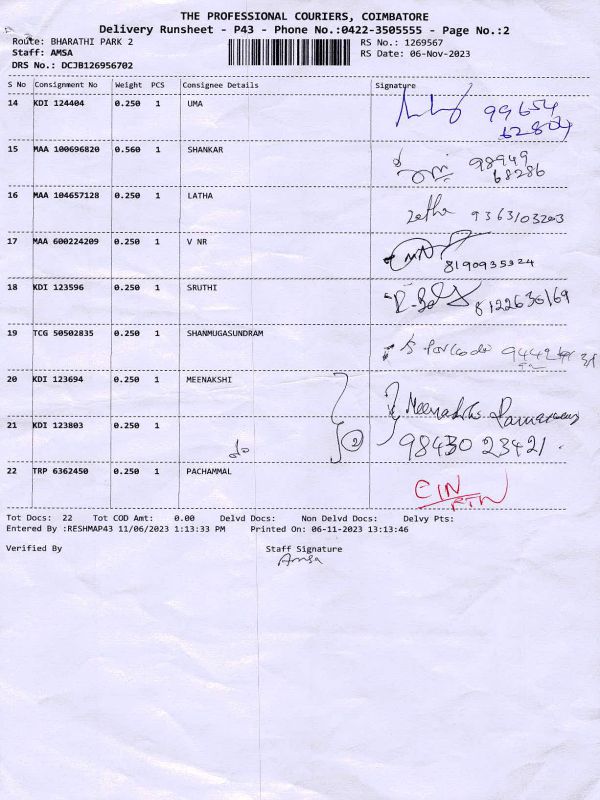 THE PROFESSIONAL COURIERS, COIMBATORE
Delivery Runsheet - P43 - Phone No.:0422-3505555 - Page No.:2
Route: BHARATHI PARK 2 RS No.: 1269567
Staff: AMSA RS Date: 06-Nov-2023
DRS No.: DCJB126956702
S No Consignment No Weight PCS Consignee Details Signature
14 KDI 124404 0.250 1 UMA 99654
62804
15 MAA 100696820 0.560 1 SHANKAR 98949
68286
16 MAA 104657128 0.250 1 LATHA Latha 9363103203
17 MAA 600224209 0.250 1 V NR 8190935324
18 KDI 123596 0.250 1 SRUTHI 8122636169
19 TCG 50502835 0.250 1 SHANMUGASUNDRAM
20 KDI 123694 0.250 1 MEENAKSHI Meenakshi
21 KDI 123803 0.250 1 do 2 98430 23421.
22 TRP 6362450 0.250 1 PACHAMMAL
Tot Docs: 22 Tot COD Amt: 0.00 Delvd Docs: Non Delvd Docs: Delvy Pts:
Entered By :RESHMAP43 11/06/2023 1:13:33 PM Printed On: 06-11-2023 13:13:46
Verified By Staff Signature
Amsa